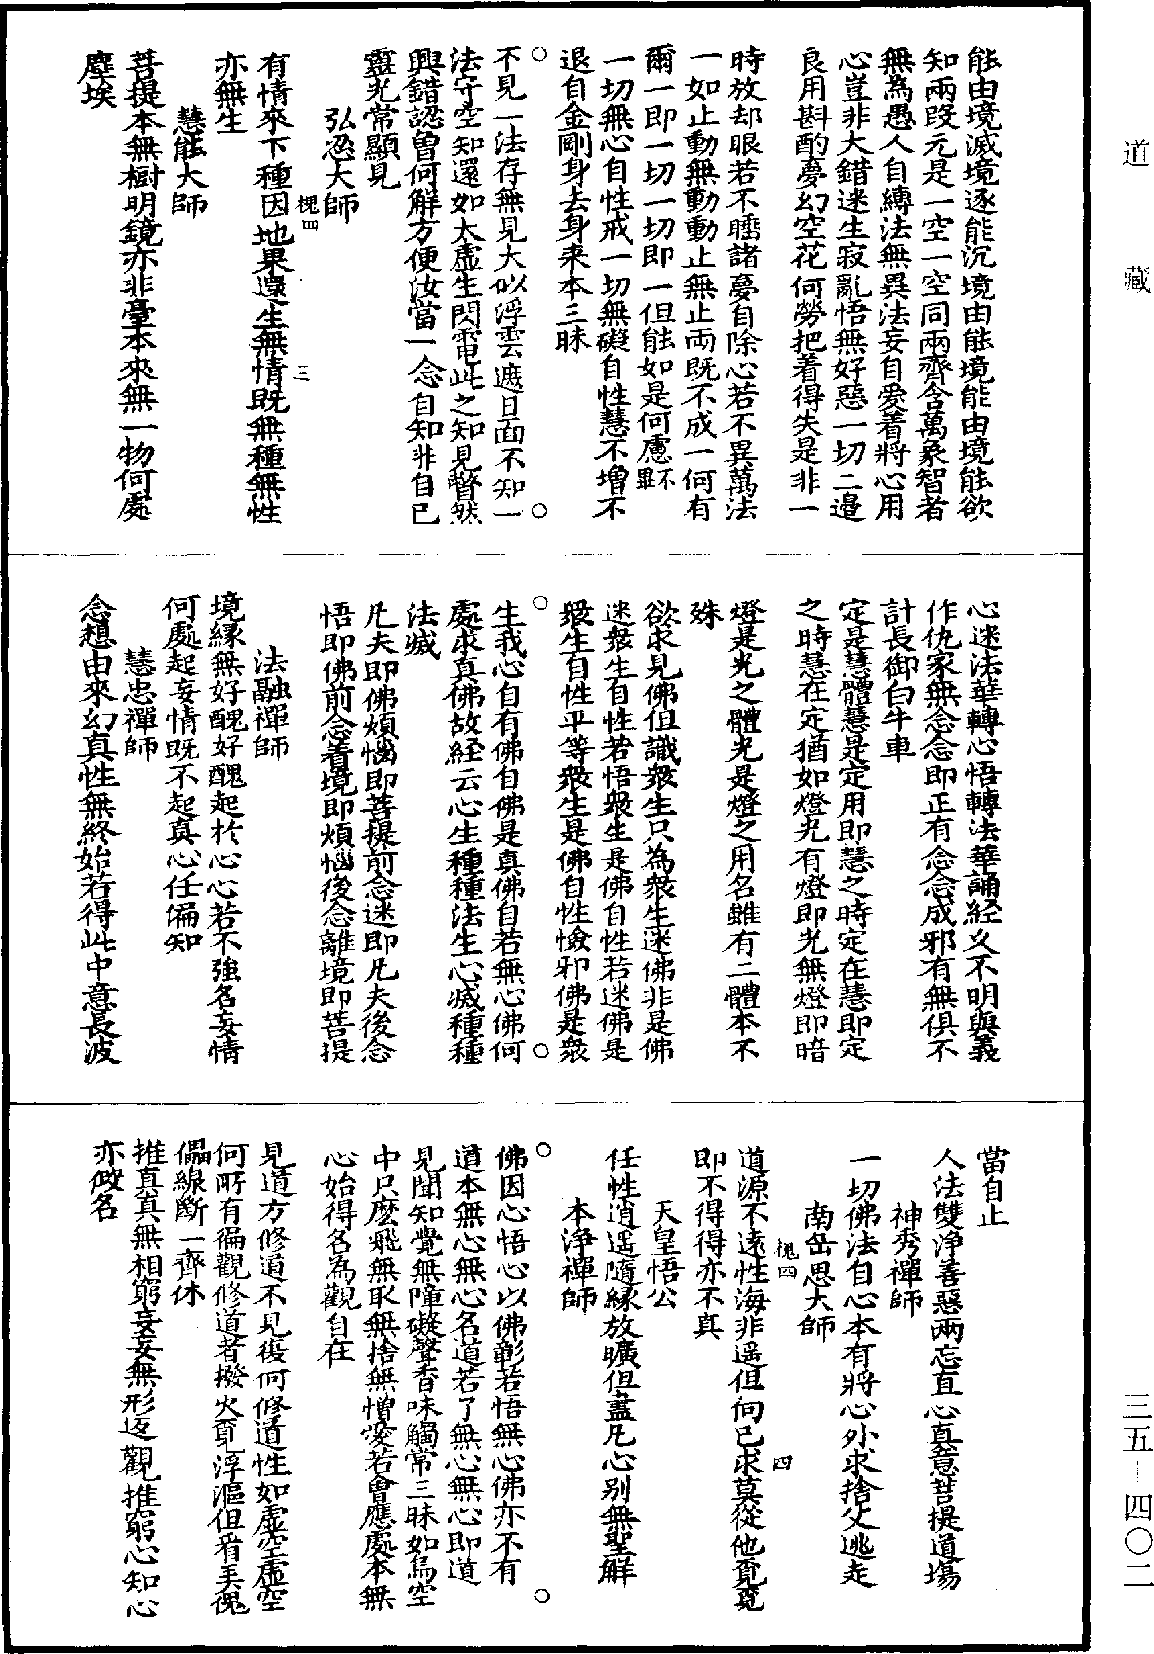 道藏
三五—四〇二
能由境滅境逐能沉境由能境能由境能欲
知兩段元是一空一空同兩齊含萬象智者
無為愚人自縛法無異法妄自愛着將心用
心豈非大錯迷生寂亂悟無好惡一切二邊
良用斟酌夢幻空花何勞把着得失是非一
時放却眼若不睡諸夢自除心若不異萬法
一如止動無動動止無止兩既不成一何有
爾一即一切一切即一但能如是何慮不畢
一切無心自性戒一切無礙自性慧不增不
退自金剛身去身來本三昧
○
○
不見一法存無見大似浮雲遮日面不知一
法守空知還如太虛生閃電此之知見瞥然
興錯認曾何解方便汝當一念自知非自己
靈光常顯見
弘忍大師
槐四
三
有情來下種因地果還生無情既無種無性
亦無生
慧能大師
菩提本無樹明鏡亦非臺本來無一物何處
塵埃
心迷法華轉心悟轉法華誦經乆不明與義
作仇家無念念即正有念念成邪有無俱不
計長御白牛車
定是慧體慧是定用即慧之時定在慧即定
之時慧在定猶如燈光有燈即光無燈即暗
燈是光之體光是燈之用名雖有二體本不
殊
欲求見佛但識衆生只為衆生迷佛非是佛
迷衆生自性若悟衆生是佛自性若迷佛是
衆生自性平等衆生是佛自性憸邪佛是衆
○
○
生我心自有佛自佛是真佛自若無心佛何
處求真佛故經云心生種種法生心滅種種
法滅
凡夫即佛煩惱即菩提前念迷即凡夫後念
悟即佛前念着境即煩惱後念離境即菩提
法融禪師
境縁無好醜好醜起於心心若不強名妄情
何處起妄情既不起真心任徧知
慧忠禪師
念想由來幻真性無終始若得此中意長波
當自止
人法雙淨善惡兩忘直心真意菩提道塲
神秀禪師
一切佛法自心本有將心外求捨父逃走
南岳思大師
槐四
四
道源不遠性海非遥但向已求莫從他覓覓
即不得得亦不真
天皇悟公
任性逍遥隨緣放曠但盡凡心别無聖解
本淨禪師
○
○
佛因心悟心以佛彰若悟無心佛亦不有
道本無心無心名道若了無心無心即道
見聞知覺無障礙聲香味觸常三昧如鳥空
中只麽飛無取無捨無憎愛若會應處本無
心始得名為觀自在
見道方修道不見復何修道性如虛空虛空
何所有徧觀修道者撥火覓浮漚但看弄傀
儡線斷一齊休
推真真無相窮妄妄無形返觀推窮心知心
亦假名